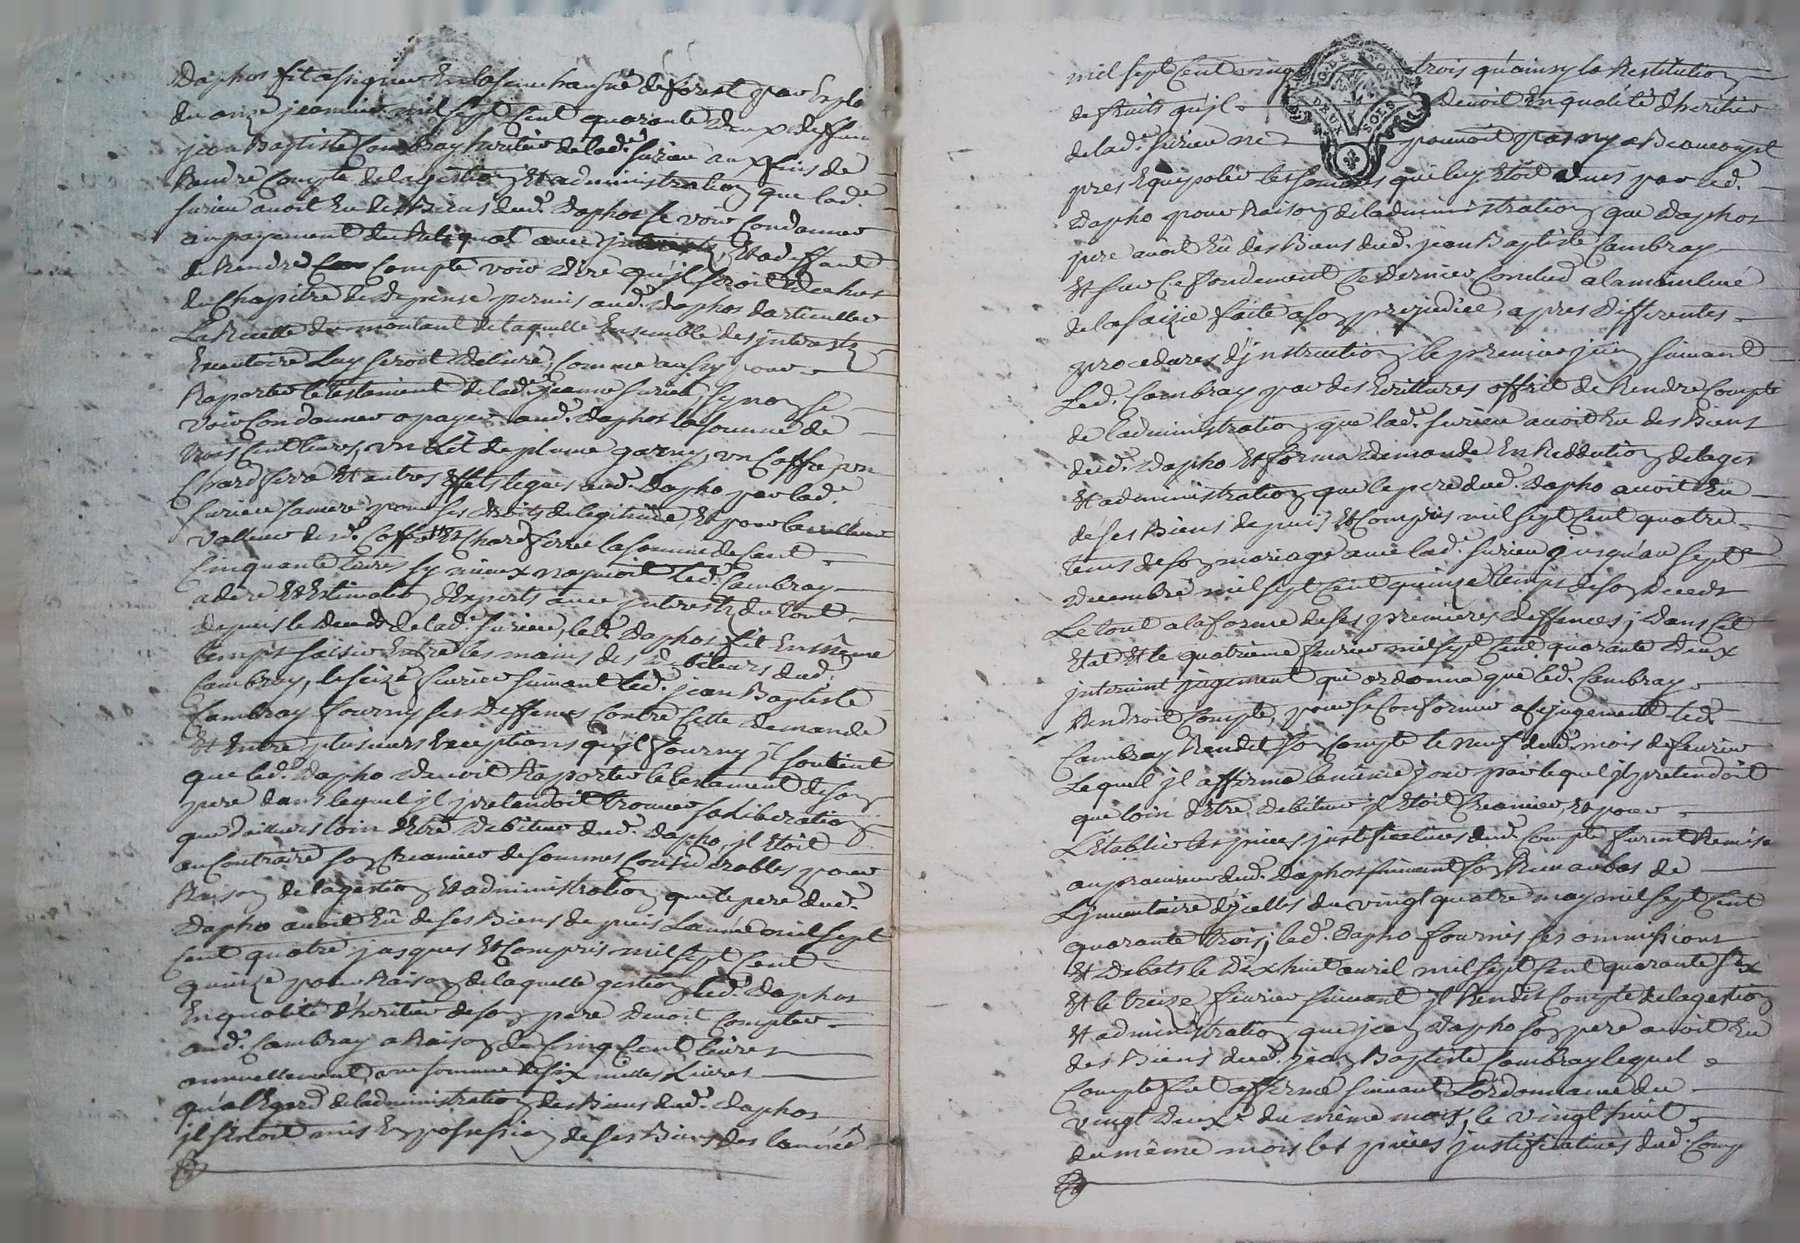 Daphos fit assigner En la senechaussée de forest par Explo
du onze janvier mil sept Cent quarante deux deffunt
jean Baptiste Cambray heritier de lad.e surieu aux fins de
Rendre Compte de la gestion Et administration que lad.e
surieu avoit Eu des Biens dud.t Daphos se voir Condamner
au payement du Reliquat avec Et a deffaut
de Rendre Compte voir dire qu'jl seroit
du Chapitre de depense permis aud.t Daphos darticuller
La Recette du montant de laquelle Ensemble des jnterests
Executoire Luy seroit delivré, Comme aussy pour
Raporter le testament de lad.e jeanne surieu sy non se
voir Condamner a payer aud.t Daphos la somme de
trois Cent livres, un Lit de plume garny, un Coffre
Chard ferra Et autres Effets legués aud.t Dapho par lad.e
surieu sa mere pour ses droits de legitime, Et pour la
valleur dud.t Coffre Et Chard ferré la somme de Cent
Cinquante livres sy mieux n'aymoit led.t Cambray
a dire Et Estimation d'Experts avec jnterests du tout
depuis le deceds de lad.e surieu, led.t Daphos fit En même
temps saisir Entre les mains des debiteurs dud.t
Cambray, le seize fevrier suivant led.t jean Baptiste
Cambray fourny ses deffences Contre Cette demande
Et Entre plusieurs Exceptions qu'jl fourny jl soutient
que led.t Dapho devoit Raporter le testament de son
pere dans lequel jl pretendoit trouver sa liberation
que d'ailleurs loin d'Etre debiteur dud.t Dapho, jl Etoit
au Contraire son Creancier de sommes Considerables pour
Raison de la gestion Et administration que le pere dud.t
Dapho avoit Eü de ses Biens depuis Lannée mil sept
Cent quatre jusques Et Compris mil sept Cent
quinze pour Raison de laquelle gestion led.t Daphos
En qualité d'heritier de son pere devoit Compter
aud.t Cambray a Raison de Cinq Cent livres
annuellement une somme de six milles Livres
qu'a l'Egard de l'administration des Biens dud.t Daphos
jl s'Etoit mis En possession de ses Biens des lannée
mil sept Cent vingt trois qu'ainsy la Restitution
de fruits qu'jl devoit En qualité d'heritier
de lad.e surieu ne pouvoit pas ny a Beaucoupt
pres Equipoler les sommes qui luy Etoit dües par led.t
Dapho pour Raison de ladministration que Daphos
pere avoit Eü des Biens dud.t jean Baptiste Cambray
Et sur Ce fondement Ce dernier Conclud a la mainlevé
de la saizie faite a son prejudice, apres differentes
procedures d'jnstruction le premier juin suivant
Led.t Cambray par des Ecrittures offrit de Rendre Compte
de l'administration que lad.e surieu avoit Eu des Biens
dud.t Dapho Et forma demande En Reddition de la ges
Et administration que le pere dud.t Dapho avoit Eu
de ses Biens depuis Et Compris mil sept Cent quatre
tems de son mariage avec lad.e surieu jusqu'au sept
decembre mil sept Cent quinze temps de son deceds
Le tout a la forme de ses premieres deffences; dans Cet
Etat Et le quatrieme fevrier mil sept Cent quarante deux
jntervint jugement qui ordonna que led.t Cambray
Rendroit Compte, pour se Conformer a Ce jugement led.t
Cambray Rendit son Compte le neuf dud.t mois de fevrier
Lequel jl affirma le même jour par lequel jl pretendoit
que loin d'Etre debiteur jl Etoit Creancier, Et pour
L'Etablir les pieces justificatives dud.t Compte furent Remise
au procureur dud.t Daphos suivant son Reçu au bas de
L'jnventaire d'jcelles du vingt quatre may mil sept Cent
quarante trois; led.t Dapho fournis ses ommissions
Et debats le dix huit avril mil sept Cent quarante six
Et le treize fevrier suivant jl Rendit Compte de la gestion
Et administration que jean Dapho son pere avoit Eu
des Biens dud.t jean Baptiste Cambray lequel
Compte fut affirmé suivant L'ordonnance du
vingt deux.e du même mois, le vingt huit
du même mois les pieces justificatives dud.t Comp
G.EN. DE LYON
DEUX SOLS